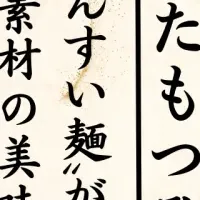 たもつ
んすい麺〟が
素材の美味